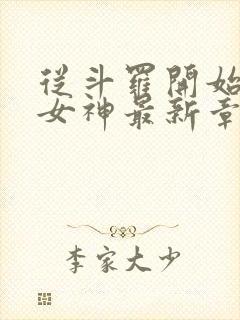 從斗羅開始
女神最新章
李家大少